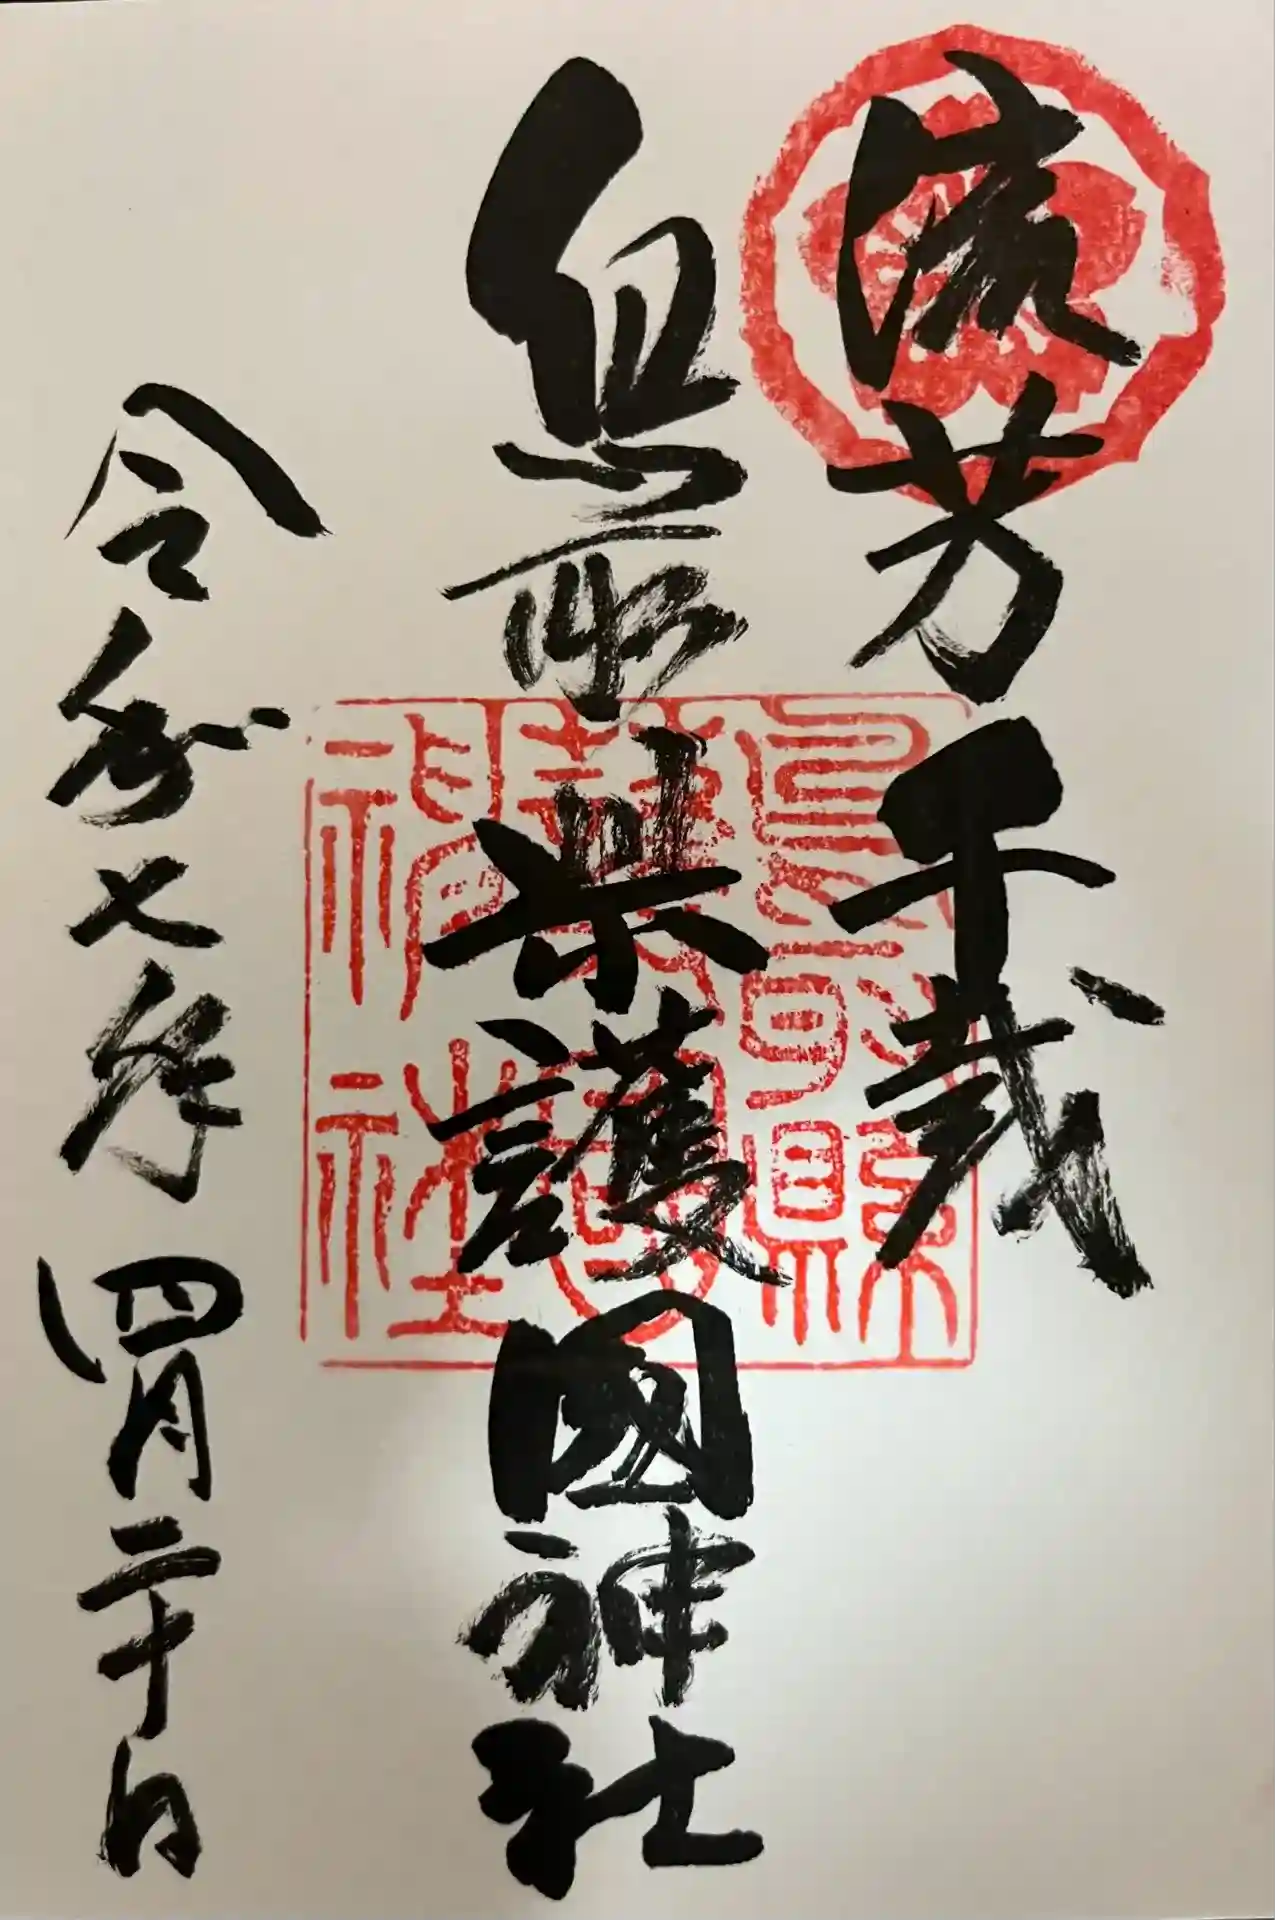 流芳千載
鳥取県護國神社
鳥取縣
護國
神社
令和七年四月二十日